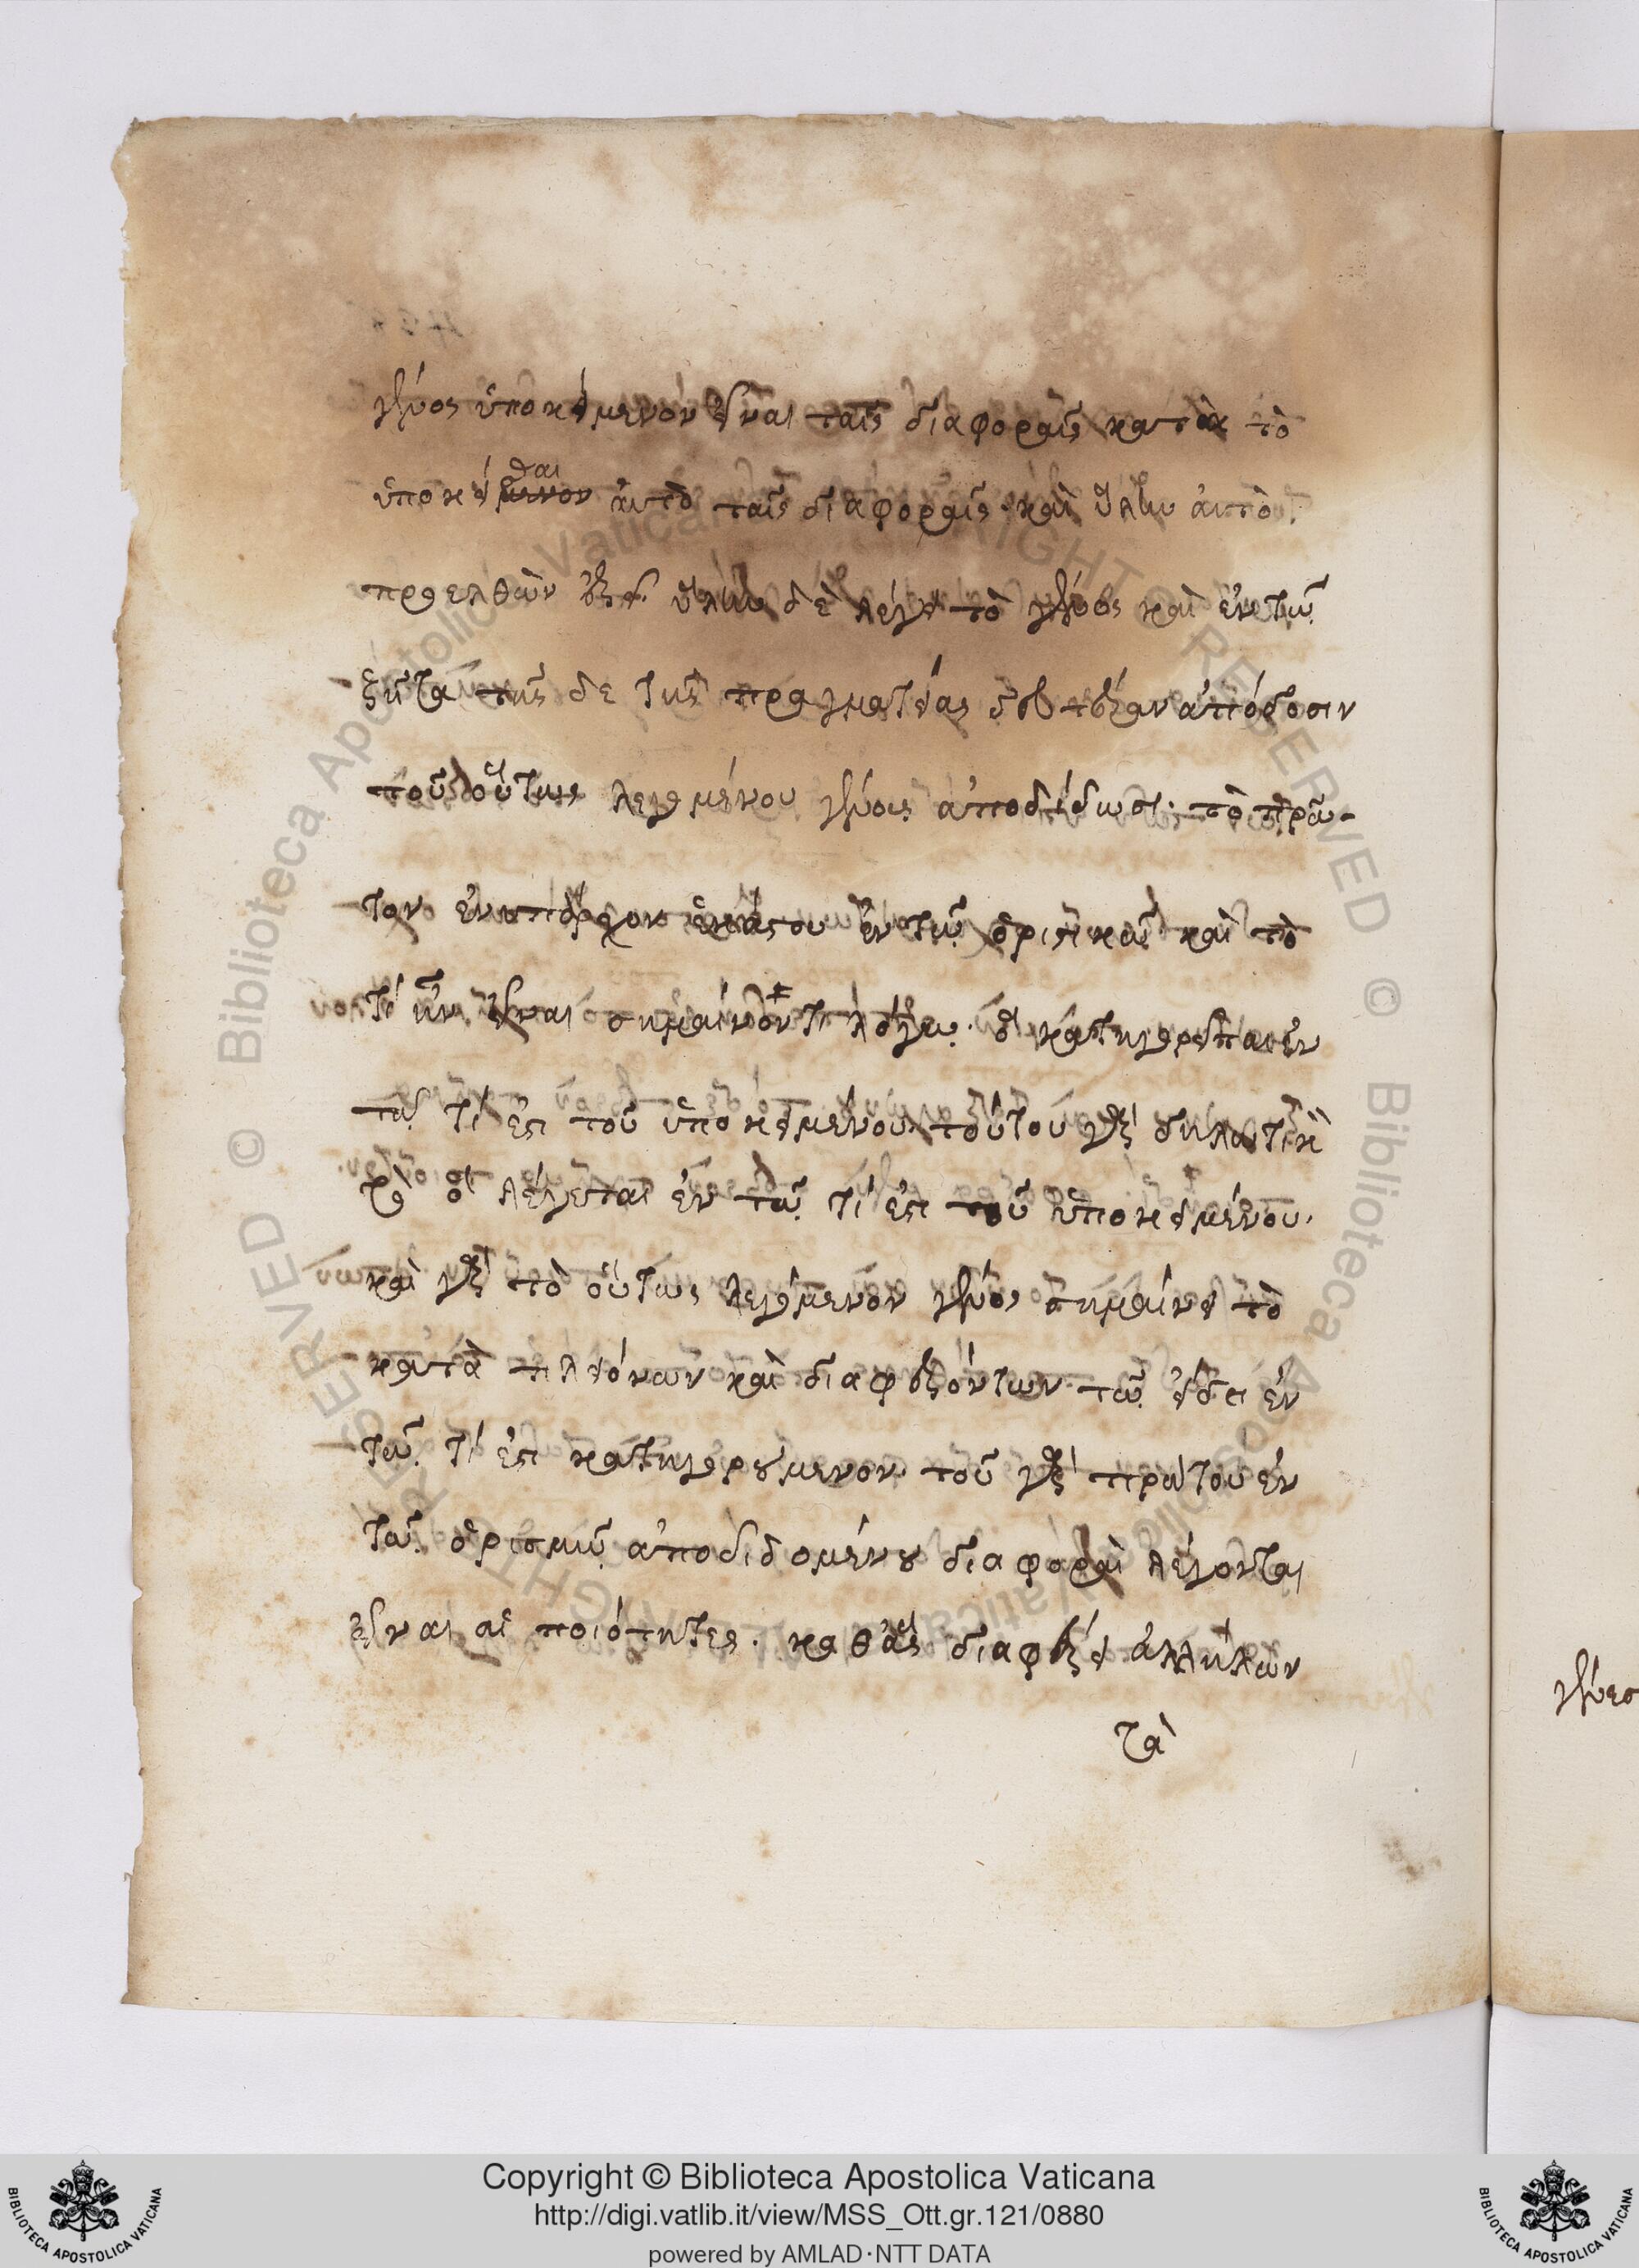 γένος ὑποκείμενον εἶναι ταῖς διαφοραῖς κατὰ τὸ
ὑποκεῖσθαι αὐτὸ ταῖς διαφοραῖς· καὶ ὕλην αὐτὸ
προελθὼν ἐρεῖ. ὕλην δὲ λέγει τὸ γένος καὶ ἐν τῷ
ζῆτα τῆσδε τῆς πραγματείας δευτέραν ἀπόδοσιν
τοῦ οὕτως λεγομένου γένους ἀποδίδωσι· τὸ πρῶ-
τον ἐνυπάρχον ἑκάστου ἐν τῷ ὁριστικῷ καὶ τὸ
τί ἦν εἶναι σημαίνοντι λόγῳ. ὃ κατηγορεῖται ἐν
τῷ τί ἐστι τοῦ ὑποκειμένου τούτου γὰρ δηλωτικὸν
τὸ ὃ λέγεται ἐν τῷ τί ἐστι τοῦ ὑποκειμένου.
καὶ γὰρ τὸ οὕτως λεγόμενον γένος σημαίνει τὸ
κατὰ πλειόνων καὶ διαφερόντων τῷ εἴδει ἐν
τῷ τί ἐστι κατηγορούμενον. τοῦ γὰρ πρώτου ἐν
τῷ ὁρισμῷ ἀποδιδομένου διαφοραὶ λέγονται
εἶναι αἱ ποιότητες. καθ' ἃς διαφέρει ἀλλήλων
τὰ
γένεσ
Copyright © Biblioteca Apostolica Vaticana
http://digi.vatlib.it/view/MSS_Ott.gr.121/0880
powered by AMLAD·NTT DATA
BIBLIOTECA APOSTOLICA VATICANA
BIBLIOTECA APOSTOLICA VATICANA